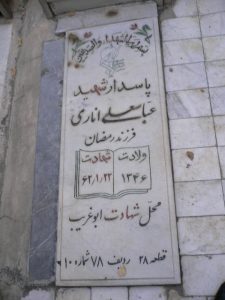 پاسدار شهید
عباسعلی اناری
فرزند رمضان
ولادت شهادت
۱۳۴۶ ۶۲/۱/۲۲
محل شهادت ابوغریب
قطعه ۲۸ ردیف ۷۸ شماره ۱۰